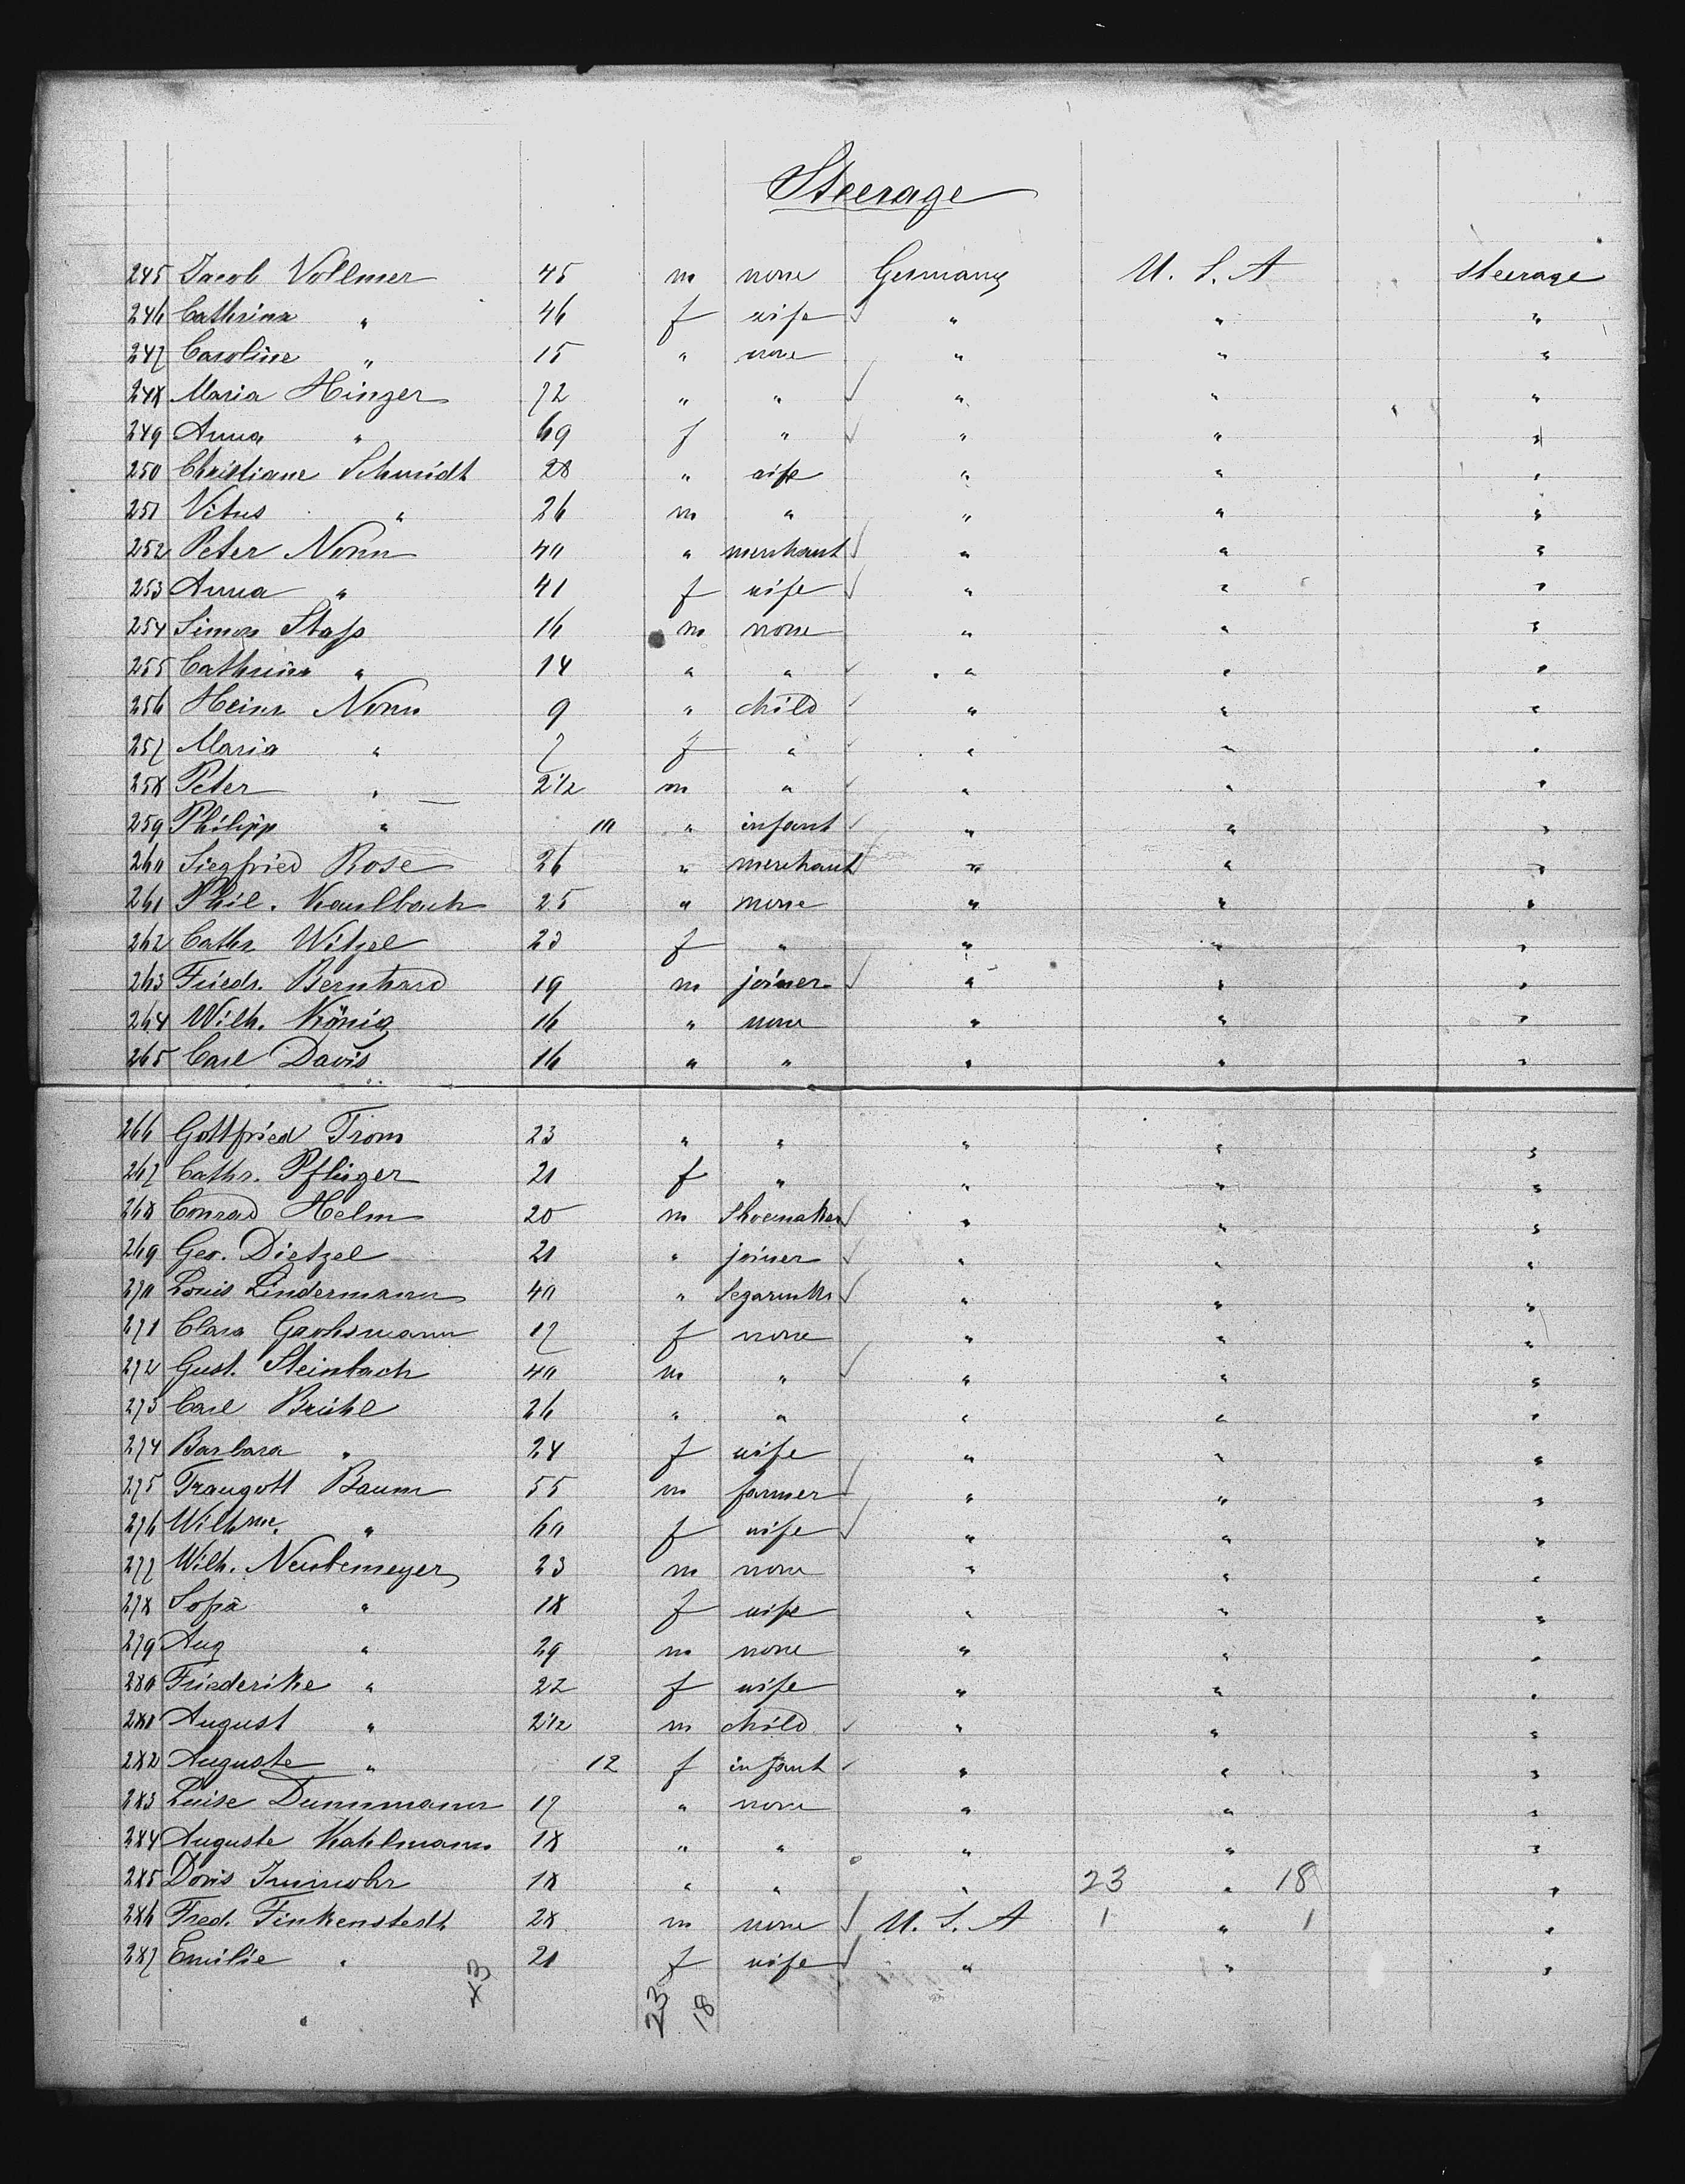 Steerage
245 Jacob Vollmer 45 m none Germany U. S. A steerage
246 Cathrina " 46 f wife " " "
247 Caroline " 15 " none " " "
248 Maria Hinger 72 " " " " "
249 Anna " 69 f " " " "
250 Christiane Schmidt 28 " wife " " "
251 Vitus " 26 m " " " "
252 Peter Nonn 40 " merchant " " "
253 Anna " 41 f wife " " "
254 Simon 16 m none " " "
255 Cathrina " 14 " " " " "
256 Heinr Nonn 9 " child " " "
257 Maria " 7 f " " " "
258 Peter " 2 1/2 m " " " "
259 Philipp " 10 " infant " " "
260 Siegfried Rose 26 " merchant " " "
261 Phil. Kaulbach 25 " none " " "
262 Cathr. Witzel 23 f " " " "
263 Friedr. Bernhard 19 m joiner " " "
264 Wilh. König 16 " none " " "
265 Carl Davis 16 " " " " "
266 Gottfried Trom 23 " " " " "
267 Cathr. Pflüger 21 f " " " "
268 Conrad Helm 20 m Shoemaker " " "
269 Geo. Dietzel 21 " joiner " " "
270 Louis Lindermann 40 " Segarmkr " " "
271 Clara 17 f none " " "
272 Gust. Steinbach 40 m " " " "
273 Carl Brühl 26 " " " " "
274 Barbara " 24 f wife " " "
275 Traugott Baum 55 m farmer " " "
276 Wilhme. " 60 f wife " " "
277 Wilh. Neubemeyer 23 m none " " "
278 Sofia " 18 f wife " " "
279 Aug " 29 m none " " "
280 Friederike " 22 f wife " " "
281 August " 2 1/2 m child " " "
282 Auguste " 12 f infant " " "
283 Luise Dummmann 17 " none " " "
284 Auguste Kahlmann 18 " " " " "
285 Doris 18 " " " 23 " 18 "
286 Fred. Finkenstedt 28 m none U. S. A 1 " 1 "
287 Emilie " 21 f wife " " "
43 23 18